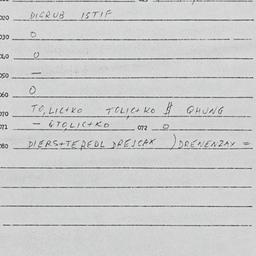 020 DIGRUB ISTIF
030 O
040 O
050 —
060 O
070 TO,LIC+KO TCLIC+KO $ QHUNG
071 - 6TO,LIC+KO 072 O
080 DIERS+TEREDL DRESCAX )DRENENZAX =